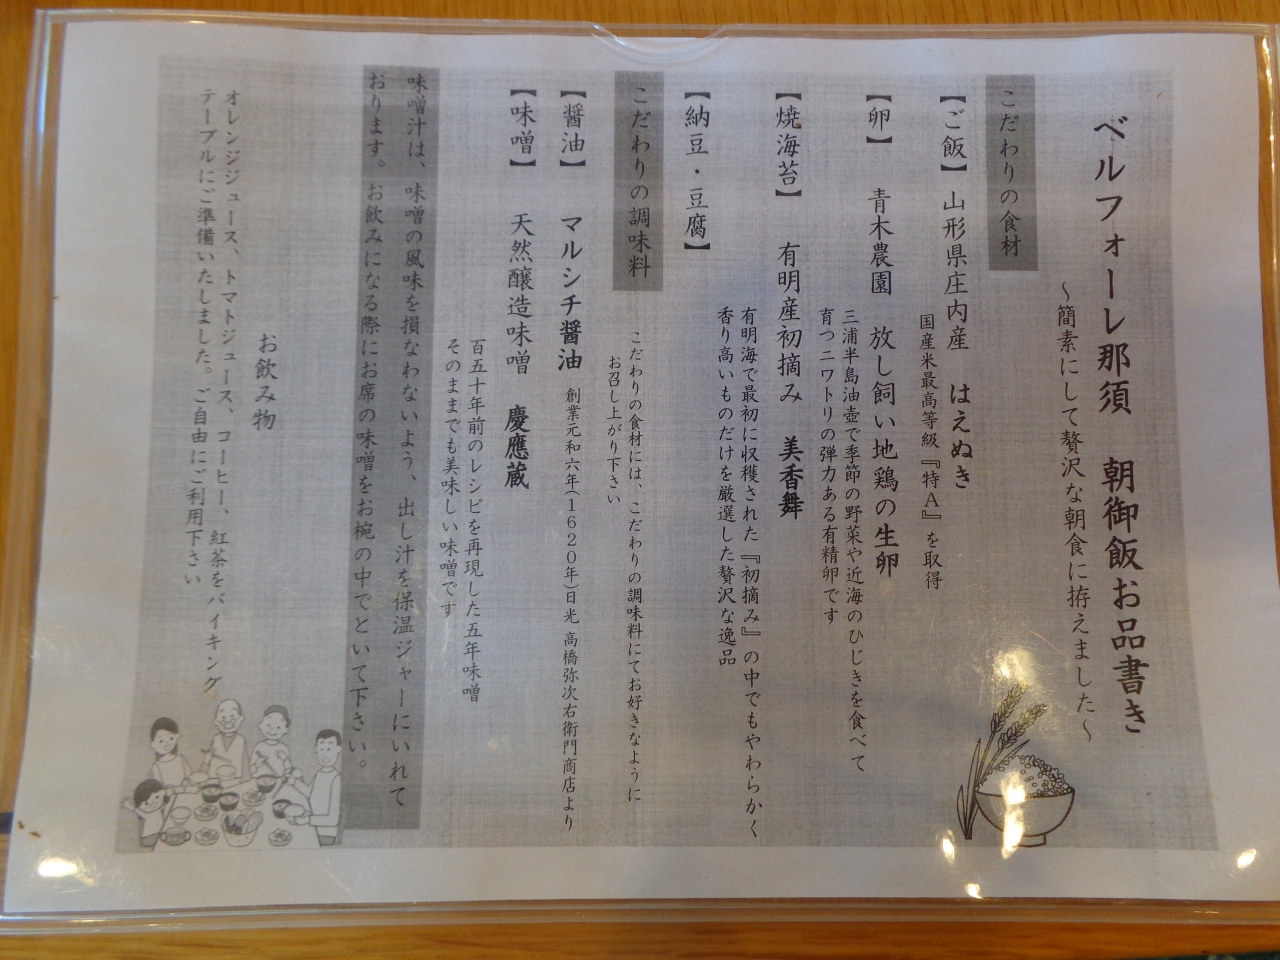 ベルフォーレ那須　朝御飯お品書き
～簡素にして贅沢な朝食に拵えました～
こだわりの食材
【ご飯】山形県庄内産　はえぬき
国産米最高等級『特A』を取得
【卵】　青木農園　放し飼い地鶏の生卵
三浦半島油壺で季節の野菜や近海のひじきを食べて
育つニワトリの弾力ある有精卵です
【焼海苔】　有明産初摘み　美香舞
有明海で最初に収穫された『初摘み』の中でもやわらかく
香り高いものだけを厳選した贅沢な逸品
【納豆・豆腐】
こだわりの調味料
こだわりの食材には、こだわりの調味料にてお好きなように
お召し上がり下さい
【醤油】　マルシチ醤油　創業元和六年（1620年）日光 高橋弥次右衛門商店より
【味噌】　天然醸造味噌　慶應蔵
百五十年前のレシピを再現した五年味噌
そのままでも美味しい味噌です
味噌汁は、味噌の風味を損なわないよう、出し汁を保温ジャーにいれて
おります。お飲みになる際にお席の味噌をお椀の中でといて下さい。
お飲み物
オレンジジュース、トマトジュース、コーヒー、紅茶をバイキング
テーブルにご準備いたしました。ご自由にご利用下さい